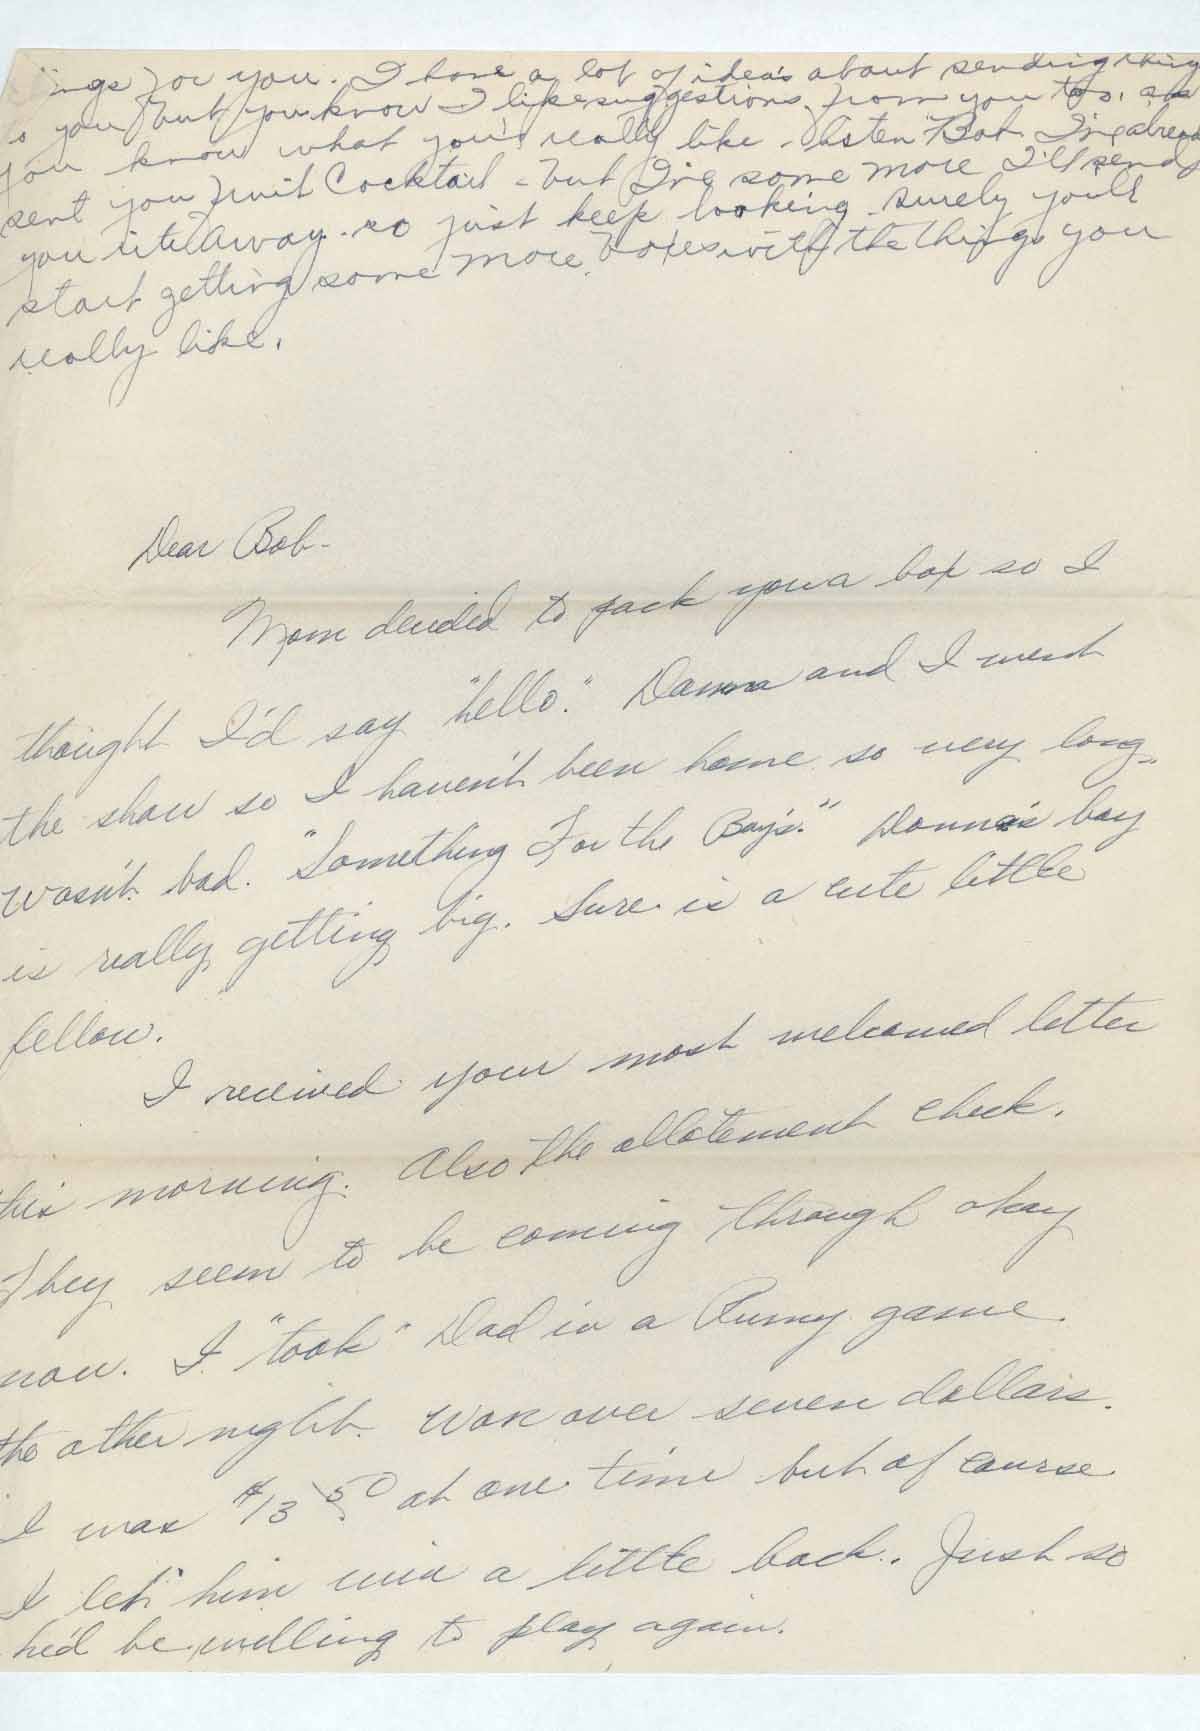 ings for you. I have a lot of ideas about sending things
to you but you know I like suggestions from you too, so
you know what you'd really like - listen Bob I've already
sent you fruit Cocktail - but I've some more I'll send
you rite away - so just keep looking surely you'll
start getting some more boxes with the things you
really like.
Dear Bob -
Mom decided to pack you a box so I
thought I'd say "hello." Donna and I went
the show so I haven't been home so very long.
Wasn't bad. "Something For the Boy's." Donna's boy
is really getting big. Sure is a cute little
fellow.
I received your most welcomed letter
this morning. Also the allotement check.
They seem to be coming through okay
now. I "took" Dad in a Rumy game
the other night. Won over seven dollars.
I was $13 50 at one time but of course
I let him win a little back. Just so
he'd be willing to play again.